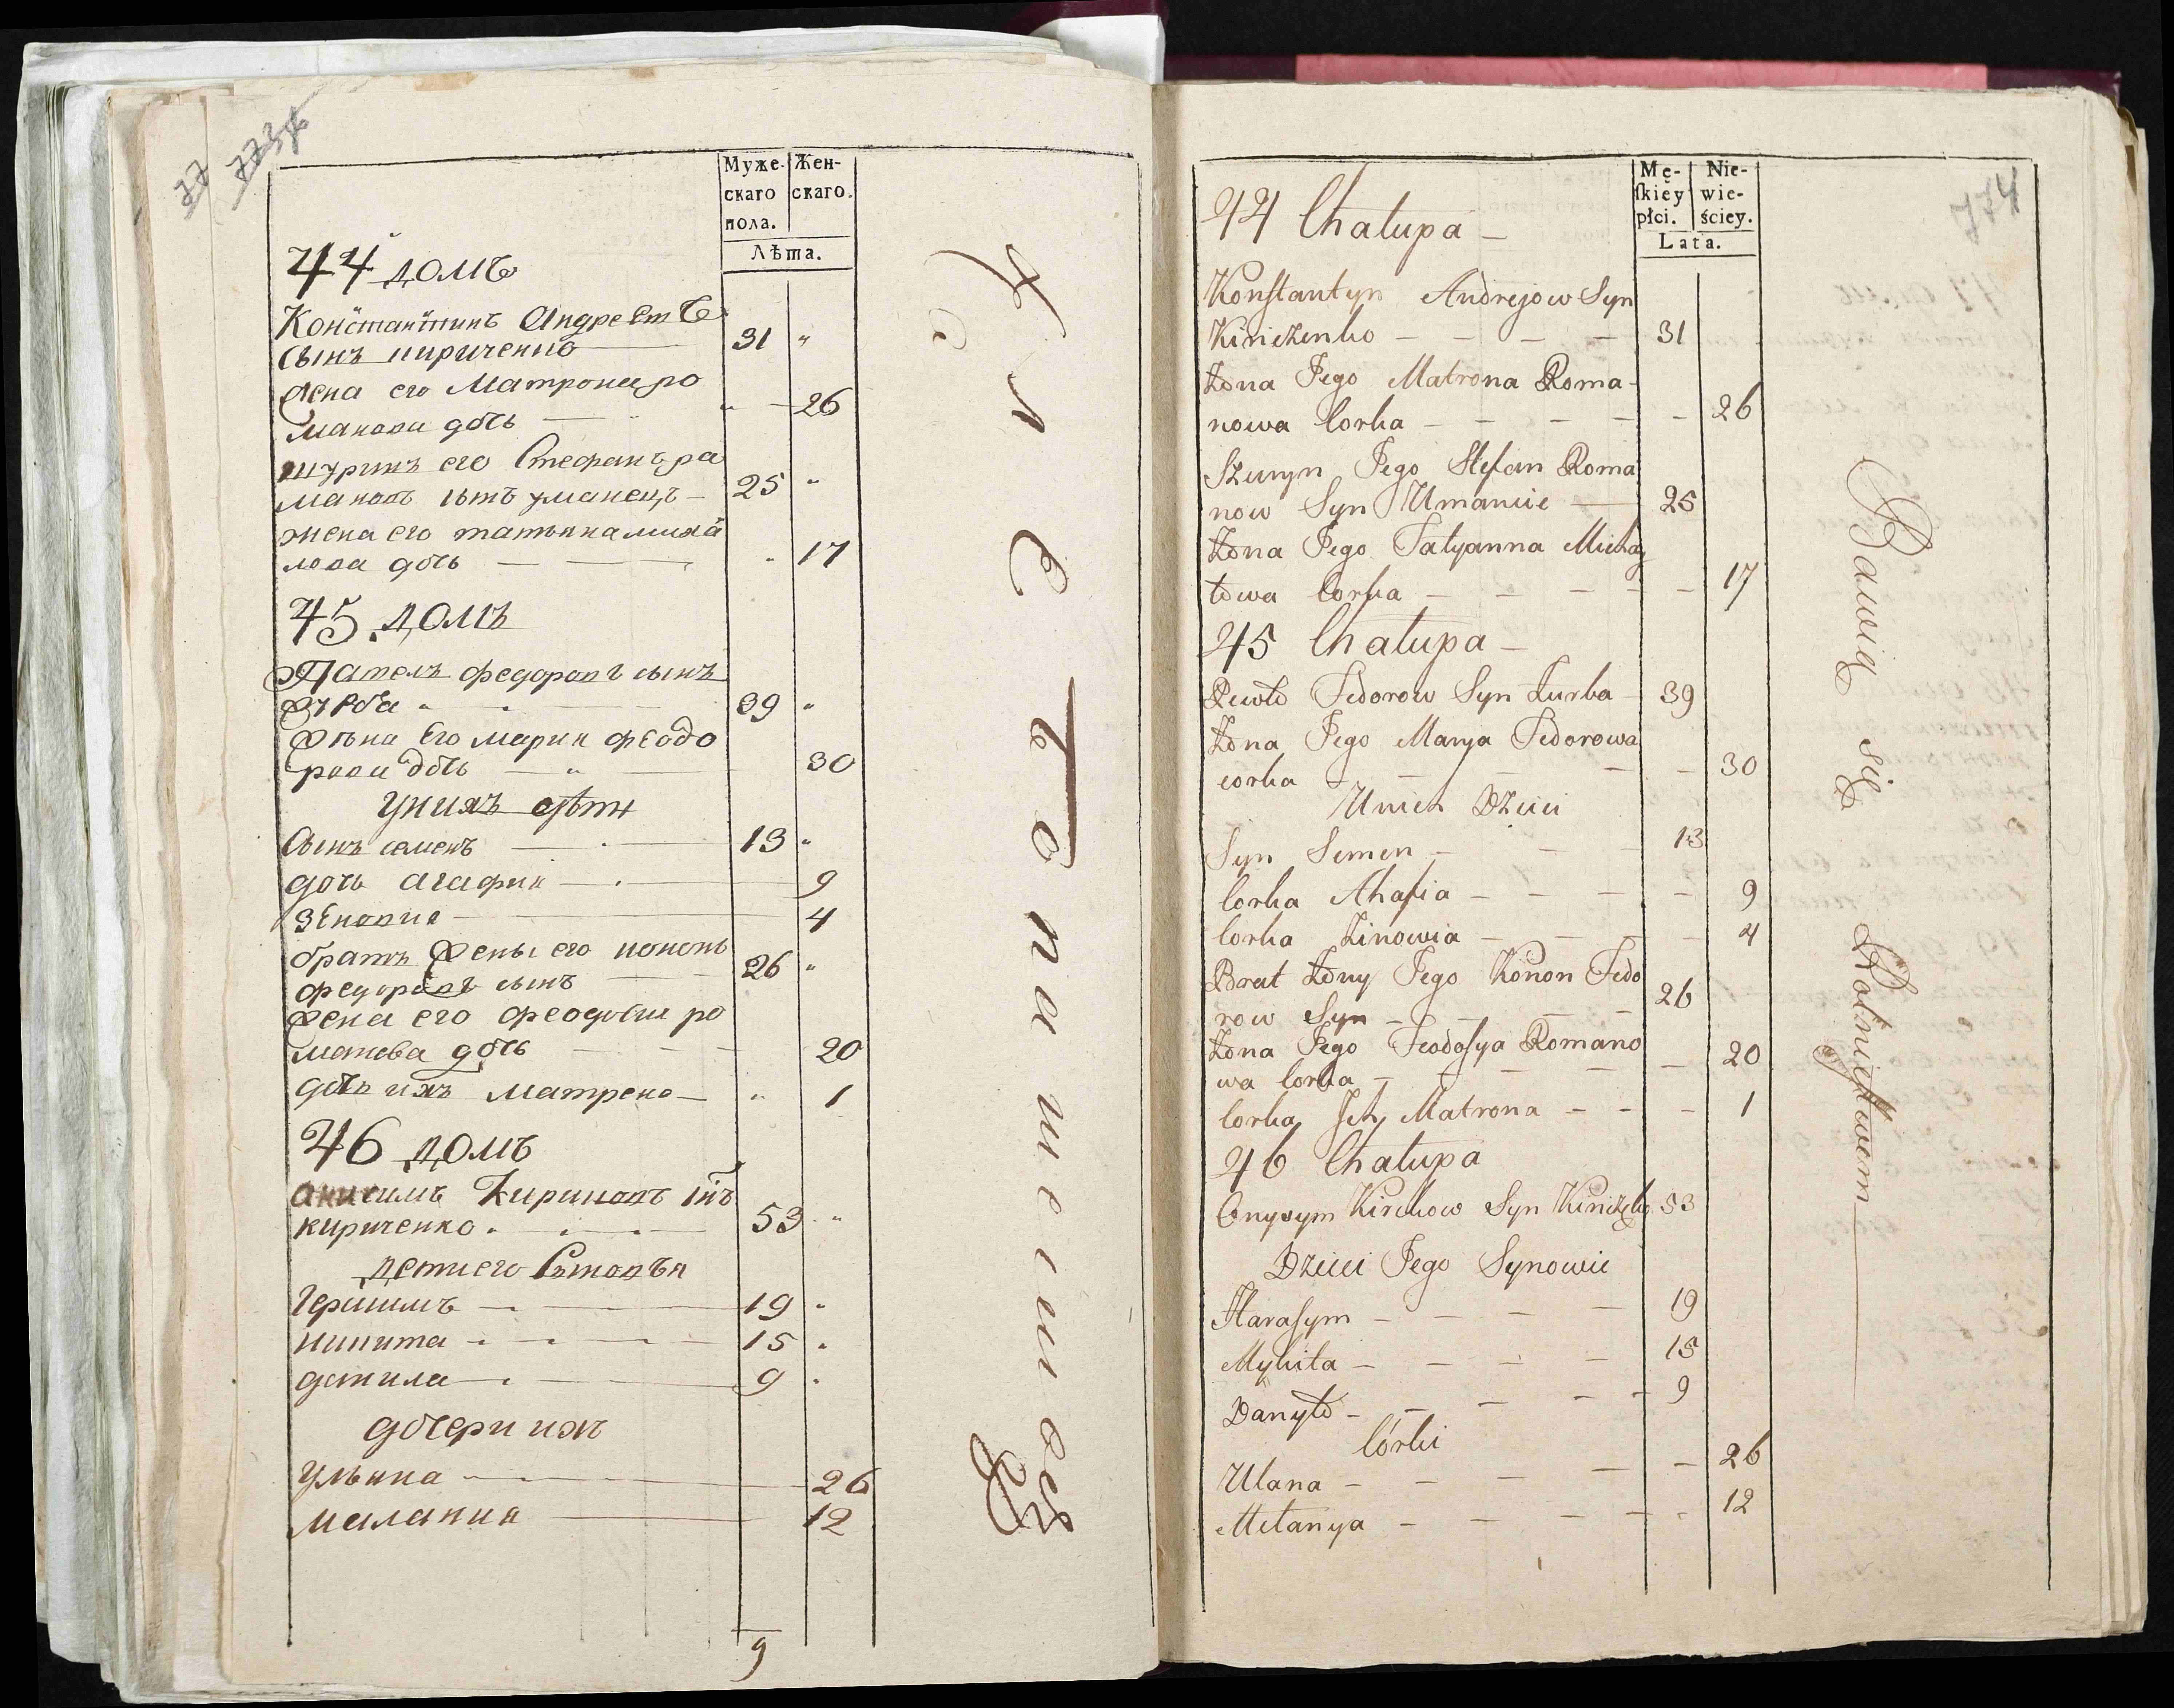 77
Муже-
скаго
пола.
Жен-
скаго.
Лѣта.
44 домъ
Константинъ Андреевъ
сынъ кириченко 31 "
жена его Матрона ро
манова дочь " 26
шуринъ его Стефанъ ра
мановъ сынъ уманецъ 25 "
жена его татьяна миха
лова дочь " 17
45 домъ
Павелъ федоровъ сынъ
39 "
жена Его Мария феодо
рова дочь 30
унихъ дѣти
сынъ семенъ 13 "
дочь агафия 9
зеновия 4
братъ жены его кононъ
федоровъ сынъ 26 "
жена его феодосия ро
манова дочь 20
дочь ихъ матрена " 1
46 домъ
анисимъ Кириковъ
кириченко 53 "
дети его
герасимъ 19 "
никита 15 "
данила 9 "
дочери ихъ
ульяна 26
малания 12
9
774
Mę-
ſkiey
płci.
Nie-
wie-
ściey.
Lata.
44 Chałupa
Konſtantyn Andrejow Syn
Kiriczenko 31
Żona Jego Matrona Roma-
nowa Corka 26
Szuryn Jego Stefan Roma
now Syn 25
Żona Jego Tatyanna Michay
łowa Corka 17
45 Chałupa
Pewło Fedorow Syn Żurba 39
Żona Jego Marya Fedorowa
corka 30
Unich Dzieci
Syn Semen 13
Corka Ahafia 9
Corka Zinowia 4
Brat Żony Jego Konon Fedo
row Syn 26
Żona Jego Feodoſya Romano
wa Corka 20
Corka Jch Matrona 1
46 Chałupa
Onysym Kirikow Syn 53
Dzieci Jego Synowie
Haraſym 19
Mykita 15
Danyło 9
Córki
Ulana 26
Mełanya 12
Bawią się Rolnictwem